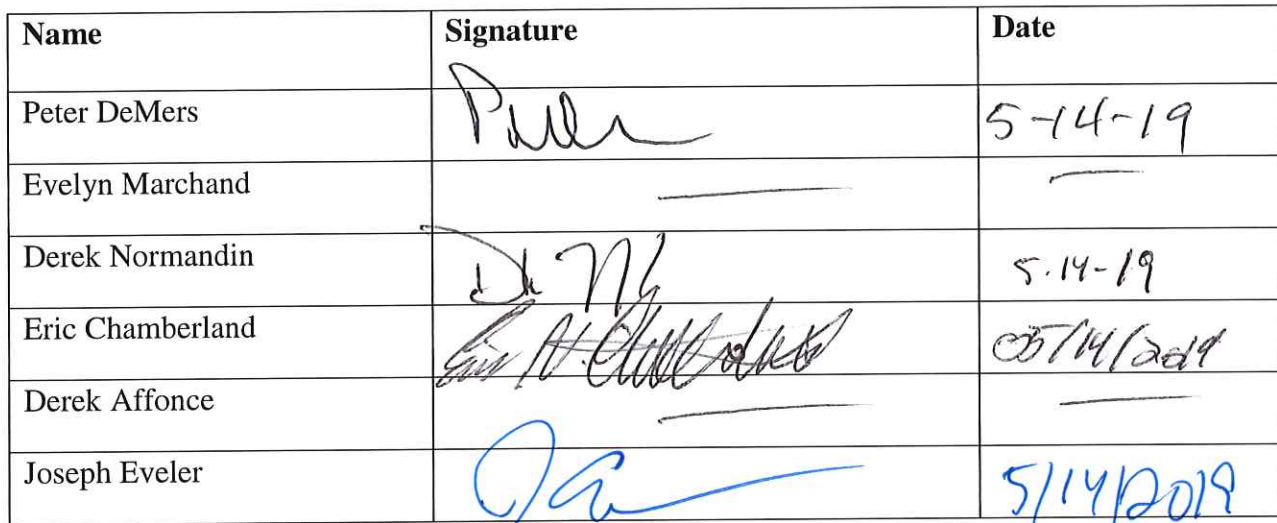 Name Signature Date
Peter DeMers 5-14-19
Evelyn Marchand — —
Derek Normandin 5.14-19
Eric Chamberland 05/14/2019
Derek Affonce — —
Joseph Eveler 5/14/2019